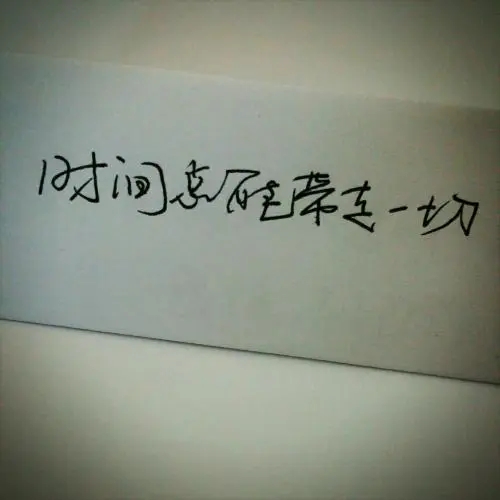 时间总能带走一切